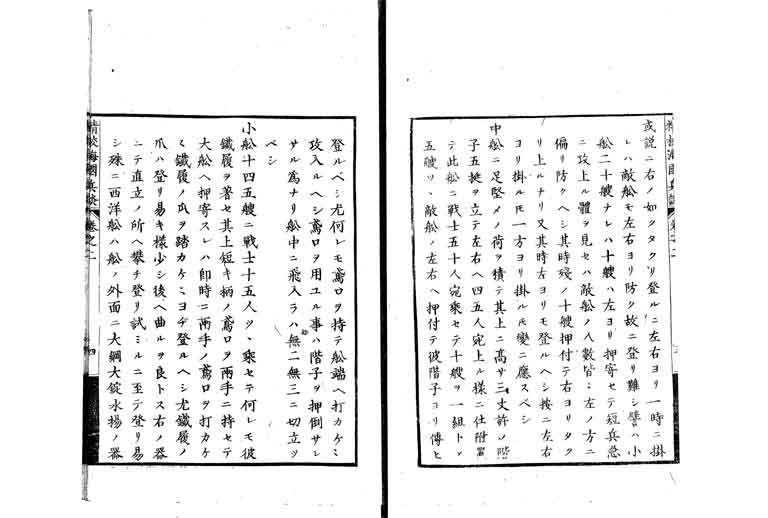 或説ニ右ノ如クタクリ登ルニ左右ヨリ一時ニ掛
レハ敵舩モ左右ヨリ防ク故ニ登リ難シ譬ハ小
舩二十艘ナレハ十艘ハ左ヨリ押寄セテ短兵急
ニ攻上ル體ヲ見セハ敵舩ノ人數皆〻左ノ方ニ
偏リ防クヘシ其時殘ノ十艘押付テ右ヨリタク
リ上ルナリ又其時左ヨリモ登ルヘシ按ニ左右
ヨリ掛ルモ一方ヨリ掛ルモ變ニ應スベシ
中舩ニ足堅メノ荷ヲ積テ其上ニ高サ三丈許ノ階
子五挺ヲ立テ左右ヘ四五人宛上ル樣ニ仕附置
テ此舩ニ戰士五十人宛乘セテ十艘ヲ一組トシ
五艘ツヽ敵舩ノ左右ヘ押付テ彼階子ヨリ傳ヒ
精校海國兵談 卷之二 四
登ルベシ尤何レモ鳶口ヲ持テ舩端ヘ打カケミ
攻入ルヘシ鳶口ヲ用ユル事ハ階子ヲ押倒サレ
サル為ナリ舩中ニ飛入ラハ無二無三ニ切立ツ
ベシ
小舩十四五艘ニ戰士十五人ツヽ乘セテ何レモ彼
鐵履ヲ著セ其上短キ柄ノ鳶口ヲ兩手ニ持セテ
大舩ヘ押寄スレハ即時ニ兩手ノ鳶口ヲ打カケ
〻鐵履ノ爪ヲ踏カケミヨヂ登ルヘシ尤鐵履ノ
爪ハ登リ易キ樣少シ後ヘ曲ルヲ良トス右ノ器
ニテ直立ノ所ヘ攀チ登リ試ミルニ至テ登リ易
シ殊ニ西洋舩ハ舩ノ外面ニ大綱大錠水揚ノ器